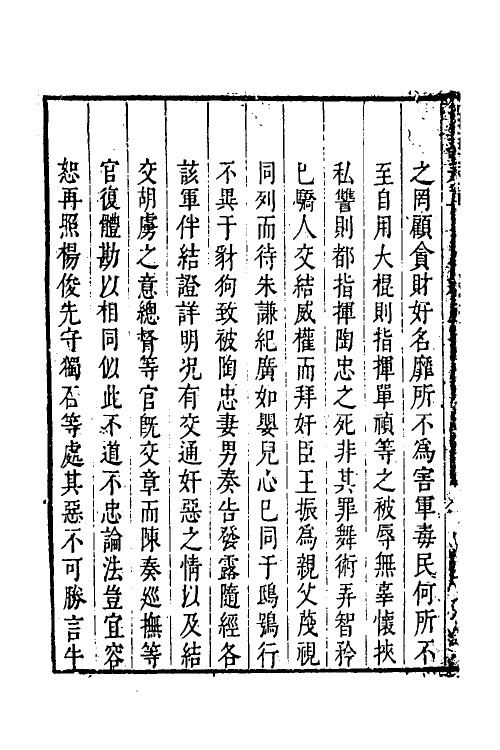 之罔顧貪財好名靡所不為害軍毒民何所不
至自用大棍則指揮單禎等之被辱無辜懷挾
私讐則都指揮陶忠之死非其罪舞術弄智矜
已驕人交結威權而拜奸臣王振為親父茂視
同列而待朱謙紀廣如嬰兒心已同于鴟鴞行
不異于豺狗致被陶忠妻男奏告發露隨經各
該軍伴結證詳明况有交通奸惡之情以及結
交胡虜之意總督等官旣交章而陳奏巡撫等
官復體勘以相同似此不道不忠論法豈宜容
恕再照楊俊先守獨石等處其惡不可勝言牛